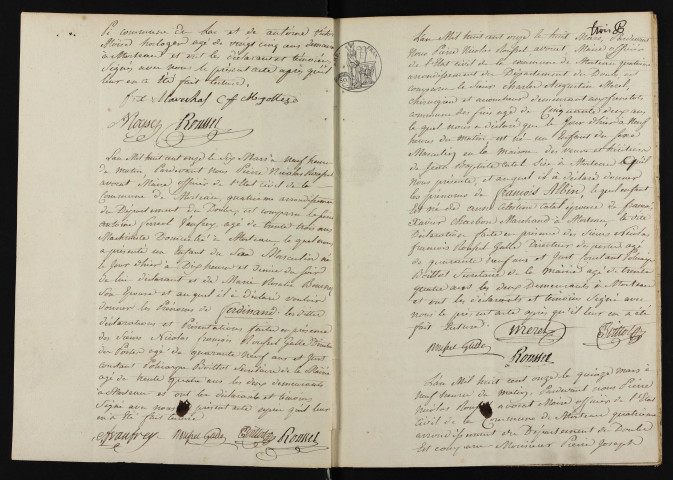 la commune du Lac et de antoine
Moïse horloger agé de vingt cinq ans demeurant
à Morteau et ont les déclarants et témoins
Signés avec nous le présent acte après qu'il
leur en a été fait lecture.
Roussel
L'an Mil huit cent onze le Six Mars à neuf heures
du matin, Pardevant nous Pierre Nicolas Roussel
avocat Maire officier de l'Etat civil de la
Commune de Morteau, quatrieme arrondissement
du Département du Doubs, est comparu le sieur
antoine Vaufrey, agé de trente trois ans
Domicilié à Morteau, lequel nous
a présenté un Enfant du Sexe Masculin né
le Jour d'hier à Dix heures et demie du soir
de lui déclarant et de Marie
Son Epouse et auquel il a déclaré vouloir
donner les Prénoms de Ferdinand. les dittes
déclarations et Présentations faites en présence
des Sieurs Nicolas François Roussel Galle Directeur
des Postes agé de quarante neuf ans et Just
constant Policarpe Boillot Secrétaire de la Mairie
agé de trente quatre ans les deux demeurants
à Morteau et ont les déclarants et témoins
Signé avec nous le présent acte après qu'il leur
en a été fait lecture
AVaufrey Roussel Galle Boillot Roussel
trois
L'an Mil huit cent onze le huit Mars, Pardevant
Nous Pierre Nicolas Roussel avocat Maire officier
de l'Etat civil de la commune de Morteau quatrieme
arrondissement du Département du Doubs, est
comparu le Sieur Charles Augustin Meret,
chirurgien et accoucheur demeurant
commune de agé de Cinquante deux ans
lequel nous a déclaré que le Jour d'hier à Neuf
heures du matin est né un Enfant du Sexe
Masculin en la maison de
Sise à Morteau qu'il
Nous présente, et auquel il a déclaré donner
les prénoms de François Albin, lequel enfant
est né de épouse de françois
Xavier Charbon Marchand à Morteau, la dite
Déclaration faite en présence des Sieurs Nicolas
françois Roussel Galle Directeur des postes agé
de quarante neuf ans et Just Constant Policarpe
Boillot Secrétaire de la mairie agé de trente
quatre ans les deux Demeurants à Morteau
et ont les déclarants et témoins Signé avec
nous le présent acte après qu'il leur en a été
fait lecture.
Meret Boillot
Roussel Galle
Roussel
L'an Mil huit cent onze le quinze mars à
neuf heures du matin, Pardevant nous Pierre
Nicolas Roussel avocat Maire officier de l'Etat
civil de la Commune de Morteau quatrieme
arrondissement du Département du Doubs
Est comparu Monsieur Pierre Joseph